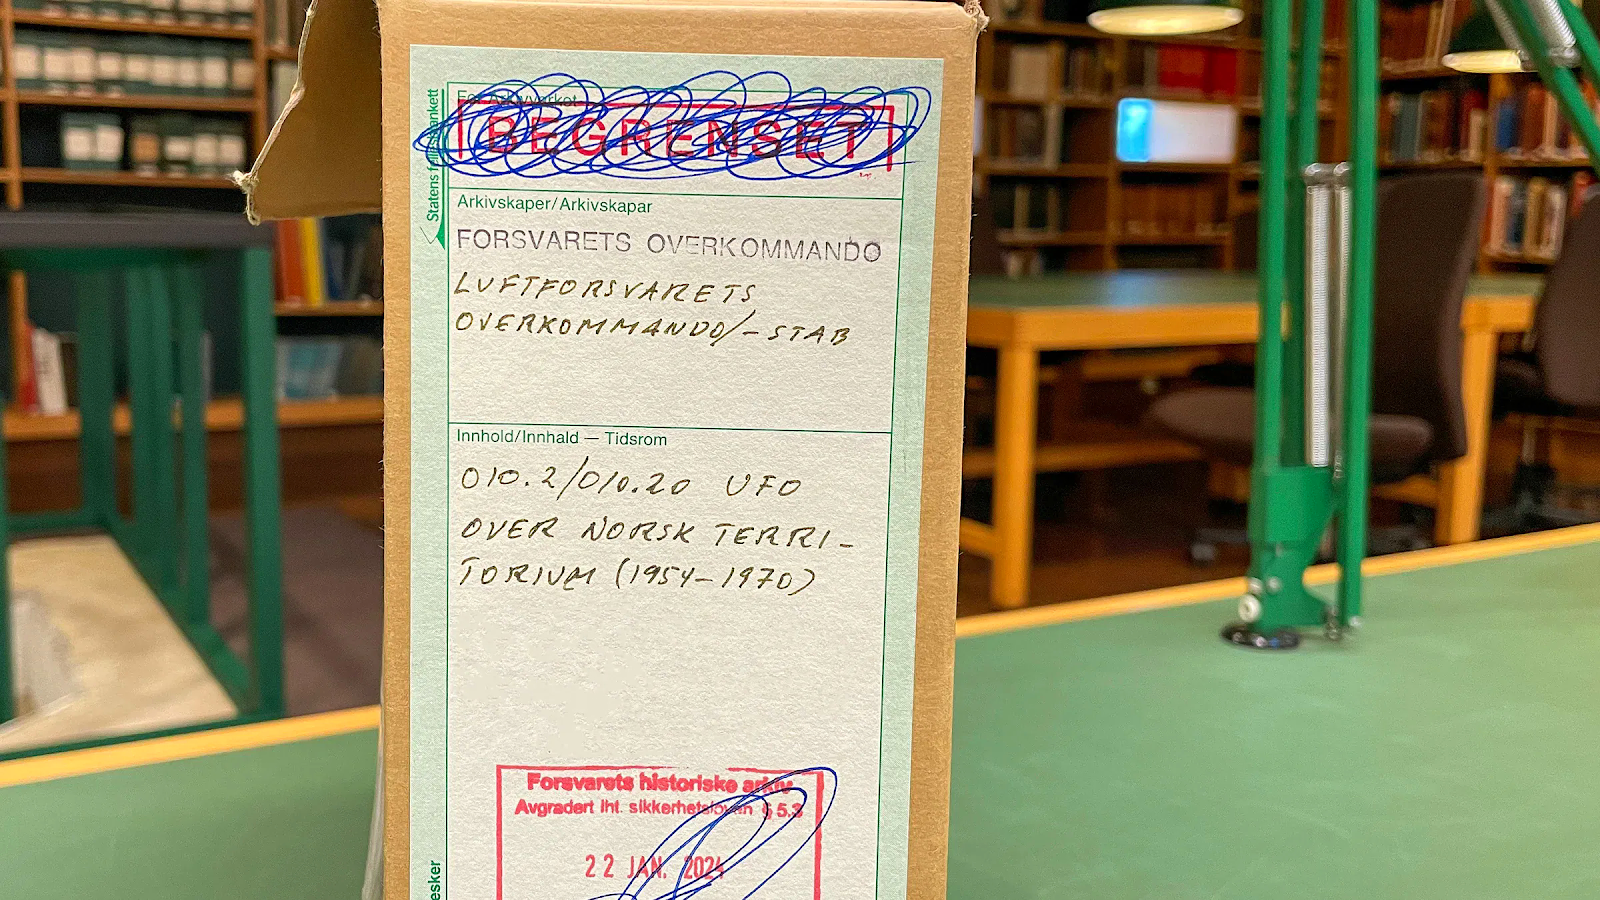 For Arkivverket
BEGRENSET
Arkivskaper/Arkivskapar
FORSVARETS OVERKOMMANDO
LUFTFORSVARETS
OVERKOMMANDO/-STAB
Innhold/Innhald — Tidsrom
010.2/010.20 UFO
OVER NORSK TERRI-
TORIUM (1954-1970)
Forsvarets historiske arkiv
Avgradert iht. sikkerhetsloven § 5.3
22 JAN. 2024
Statens
esker